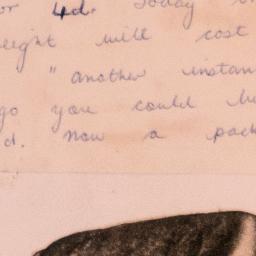 or 4d. Today
eight will cost
" another instan
go you could
d. Now a pack